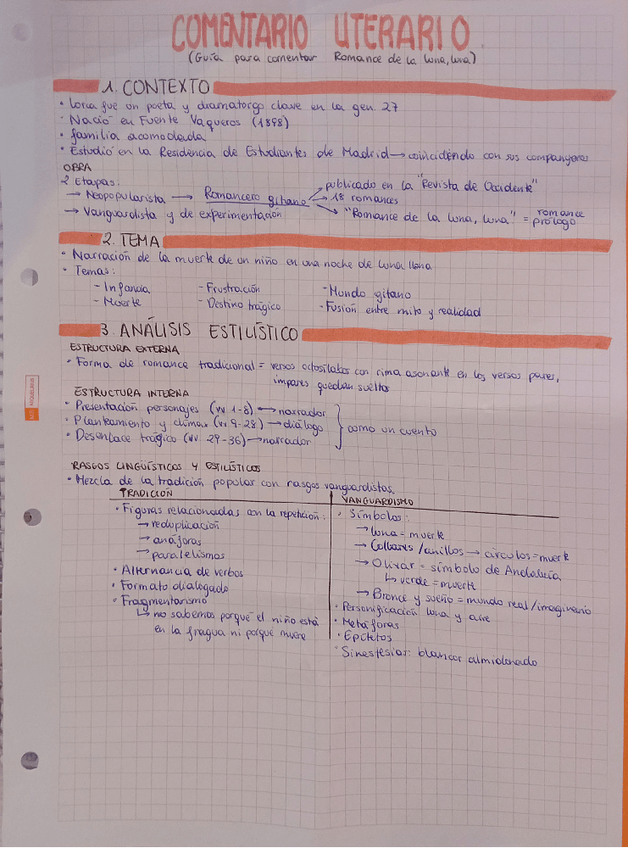 COMENTARIO LITERARIO
(Guía para comentar Romance de la luna, luna)
1. CONTEXTO
• Lorca fue un poeta y dramaturgo clave en la gen. 27
• Nació en Fuente Vaqueros (1898)
• familia acomodada
• Estudió en la Residencia de Estudiantes de Madrid → coincidiendo con sus compañeros
OBRA
2 Etapas:
→ Neopopularista → Romancero gitano → publicado en la "Revista de Occidente"
→ 18 romances
→ "Romance de la luna, luna" = romance prólogo
→ Vanguardista y de experimentación
2. TEMA
• Narración de la muerte de un niño en una noche de luna llena
• Temas:
- Infancia - Frustración - Mundo gitano
- Muerte - Destino trágico - Fusión entre mito y realidad
3. ANÁLISIS ESTILÍSTICO
ESTRUCTURA EXTERNA
• Forma de romance tradicional = versos octosílabos con rima asonante en los versos pares,
impares quedan sueltos
ESTRUCTURA INTERNA
• Presentación personajes (vv 1-8) → narrador
• Planteamiento y clímax (vv 9-28) → diálogo
• Desenlace trágico (vv. 29-36) → narrador
como un cuento
RASGOS LINGÜÍSTICOS Y ESTILÍSTICOS
• Mezcla de la tradición popular con rasgos vanguardistas.
TRADICIÓN
• Figuras relacionadas con la repetición:
→ reduplicación
→ anáforas
→ paralelismos
• Alternancia de verbos
• Formato dialogado
• Fragmentarismo
↳ no sabemos porqué el niño está
en la fragua ni porqué muere
VANGUARDISMO
• Símbolos:
→ luna = muerte
→ Collares/anillos → círculos = muerte
→ Olivar = símbolo de Andalucía
↳ verde = muerte
→ Bronce y sueño = mundo real/imaginario
• Personificación luna y aire
• Metáforas
• Epítetos
• Sinestesias: blancor almidonado